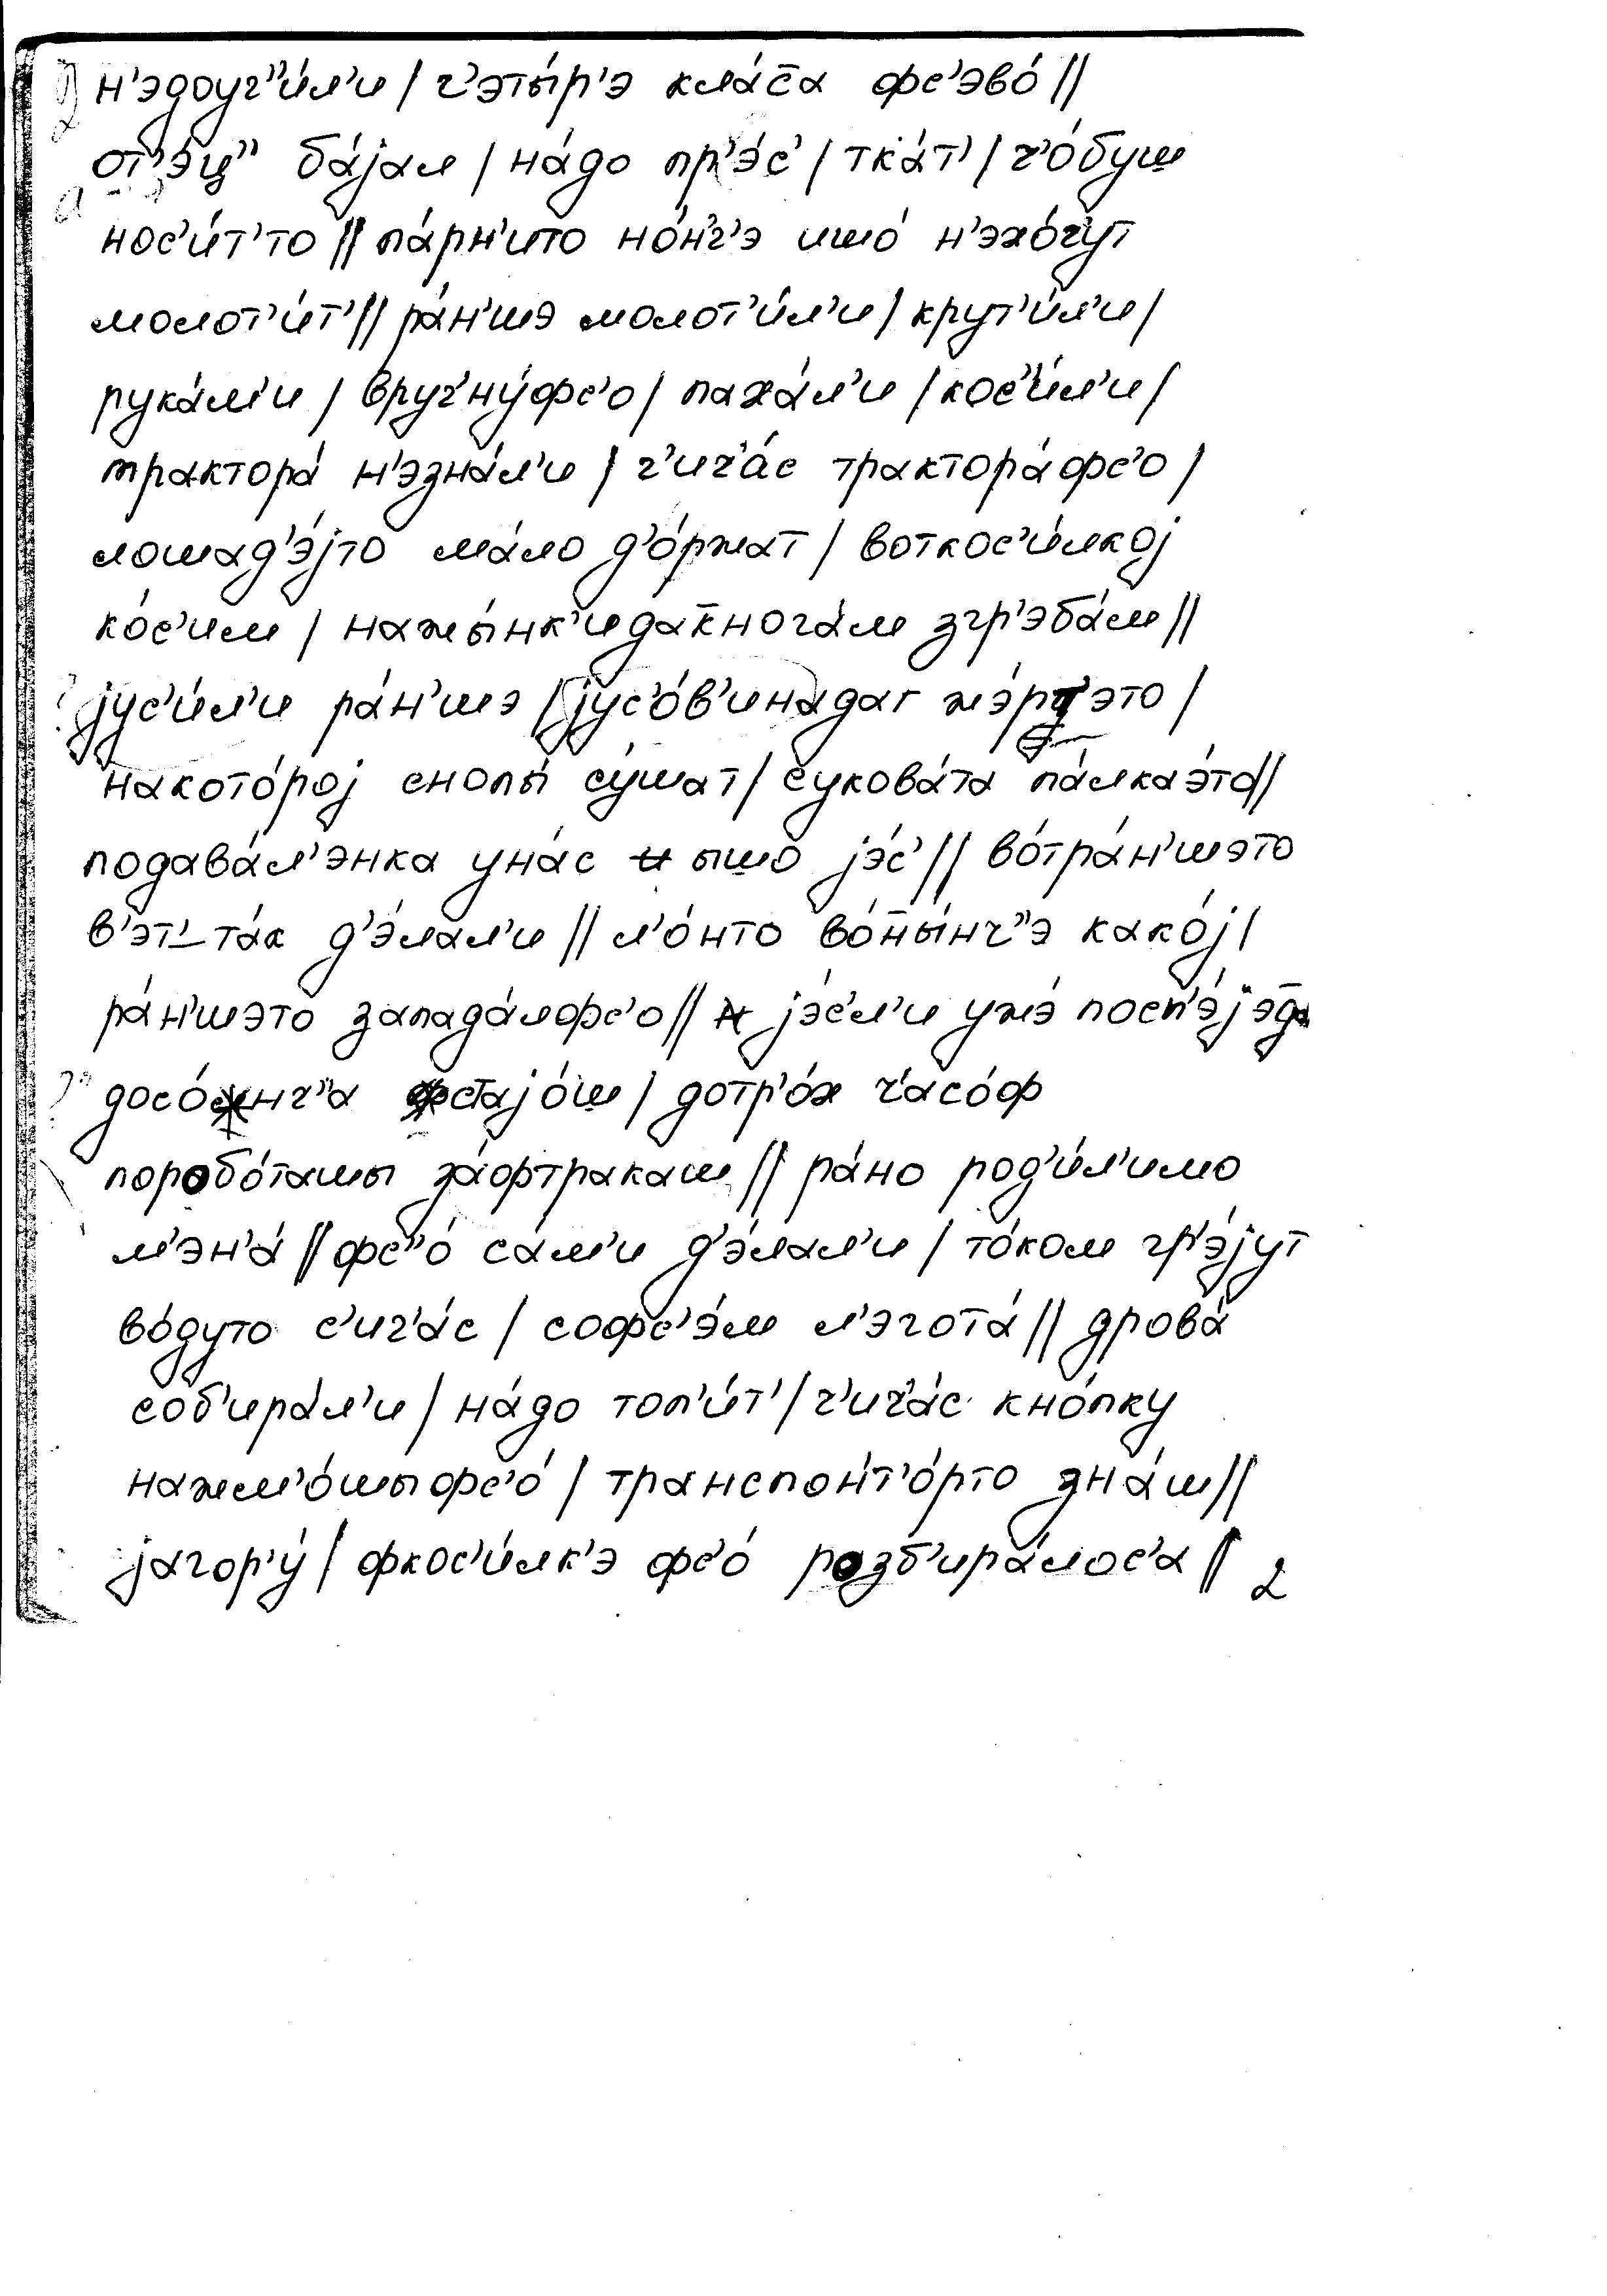 н'эдоуг"и́л'и / ч'эты́р'э кла́с̄а фс'эво́ //
от'э́ц" ба́јал / на́до пр'э́с' / тка́т' / ч'о́буш
нос'и́т'то // па́рн'ито но́н'ч'э ишо́ н'эхо́ч'ут
молот'и́т' // ра́н'шэ молот'и́л'и / крут'и́л'и /
рука́м'и / вруч'ну́фс'о / паха́л'и / кос'и́л'и /
трактора́ н'эзна́л'и / ч'ич'а́с трактора́фс'о /
лошад'э́јто ма́ло д'о́ржат / воткос'и́лкој
ко́с'им / нажы́нк'идак̄нога́м згр'эба́м //
јус'и́л'и ра́н'шэ / јус'о́в'инадаг жэ́рт'это /
накото́рој снопы́ су́шат / сукова́та па́лкаэ́то //
подава́л'энка уна́с ышо јэ́с' // во́тра́н'шэто
в'эт'–та́к д'э́лал'и // л'о́нто во́н̄ы́нч"э како́ј /
ра́н'шэто запада́лофс'о // јэ́с'л'и ужэ́ посп'э́јэд
досо́нч"а стајо́ш / дотр'о́х ч'асо́ф
поробо́ташы за́фтракаш // ра́но род'и́л'имо
м'эн'а́ // фс"о́ са́м'и д'э́лал'и / то́ком гр'э́јут
во́дуто с'ич'а́с / софс'э́м л'эгот̄а́ // дрова́
соб'ира́л'и / на́до топ'и́т' / ч'ич'а́с кно́пку
нажм'о́шыфс'о́ / транспон'т'о́рто зна́ш //
јагор'у́ / фкос'и́лк'э фс'о́ розб'ира́лос'а // 2